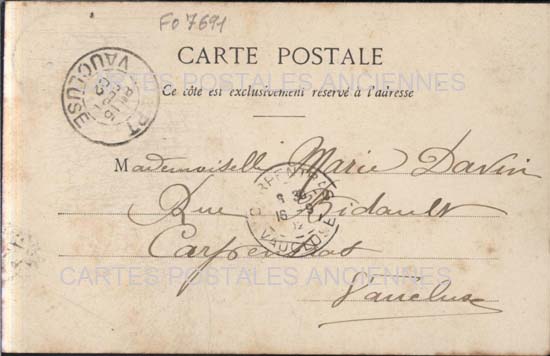 Fo 7691
CARTE POSTALE
Ce côté est exclusivement réservé à l'adresse
CARTES POSTALES ANCIENNES
APT
VAUCLUSE
Mademoiselle Marie Davin
CARPENTRAS
VAUCLUSE
Rue Bidault
Carpentras
CARTES POSTALES ANCIENNES
Vaucluse